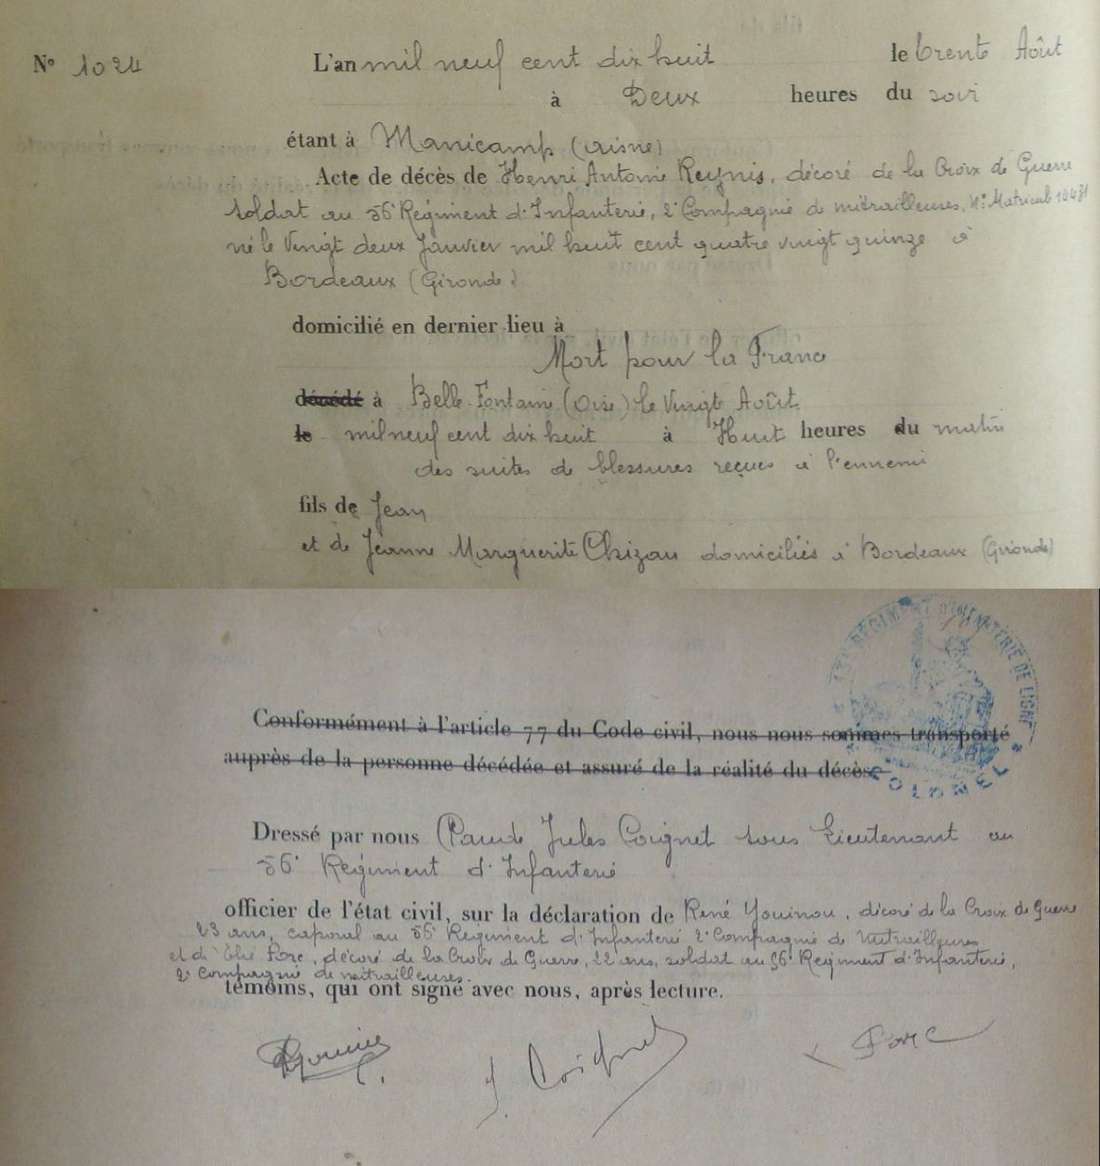 Nº 1024
L'an mil neuf cent dix huit le trente Août
à Deux heures du soir
étant à Manicamp (Aisne)
Acte de décès de Henri Antoine Reynis, décoré de la Croix de Guerre
soldat au 56e Régiment d'Infanterie, 2e Compagnie de mitrailleuses, Nº Matricule
né le Vingt deux Janvier mil huit cent quatre vingt quinze à
Bordeaux (Gironde)
domicilié en dernier lieu à
Mort pour la France
décédé à Belle-Fontaine (Oise) le Vingt Août
le mil neuf cent dix huit à Huit heures du matin
des suites de blessures reçues à l'ennemi
fils de Jean
et de Jeanne Marguerite Chizau domiciliés à Bordeaux (Gironde)
RÉGIMENT D'INFANTERIE DE LIGNE
Conformément à l'article 77 du Code civil, nous nous sommes transporté
auprès de la personne décédée et assuré de la réalité du décès.
Dressé par nous Claude Jules Coignet sous Lieutenant au
56e Régiment d'Infanterie
officier de l'état civil, sur la déclaration de René Youinou, décoré de la Croix de Guerre
23 ans, caporal au 56e Régiment d'Infanterie 2e Compagnie de Mitrailleuses
et d'Elie Porc, décoré de la Croix de Guerre, 22 ans, soldat au 56e Régiment d'Infanterie,
2e Compagnie de mitrailleuses.
témoins, qui ont signé avec nous, après lecture.
J. Coignet
Porc